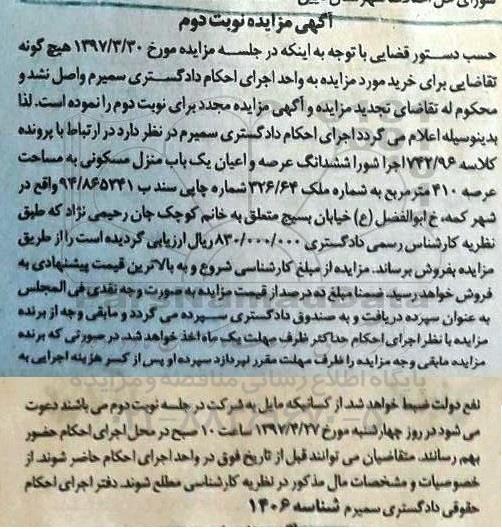 آگهی مزایده نوبت دوم
حسب دستور قضایی با توجه به اینکه در جلسه مزایده مورخ ۱۳۹۷/۳/۳۰ هیچ گونه
تقاضایی برای خرید مورد مزایده به واحد اجرای احکام دادگستری سمیرم واصل نشد و
محکوم له تقاضای تجدید مزایده و آگهی مزایده مجدد برای نوبت دوم را نموده است. لذا
بدینوسیله اعلام می گردد اجرای احکام دادگستری سمیرم در نظر دارد در ارتباط با پرونده
کلاسه ۷۴۲/۹۶ اجرا شورا ششدانگ عرصه و اعیان یک باب منزل مسکونی به مساحت
عرصه ۴۱۰ متر مربع به شماره ملک ۳۲۶/۶۴ شماره چاپی سند ب ۹۴/۸۶۵۳۴۱ واقع در
شهر کمه، خ ابوالفضل (ع) خیابان بسیج متعلق به خانم کوچک جان رحیمی نژاد که طبق
نظریه کارشناس رسمی دادگستری ۸۳۰/۰۰۰/۰۰۰ ریال ارزیابی گردیده است را از طریق
مزایده بفروش برساند. مزایده از مبلغ کارشناسی شروع و به بالاترین قیمت پیشنهادی به
فروش خواهد رسید. ضمنا مبلغ ده درصد از قیمت مزایده به صورت وجه نقدی فی المجلس
به عنوان سپرده دریافت و به صندوق دادگستری سپرده می گردد و مابقی وجه از برنده
مزایده با نظر اجرای احکام حداکثر ظرف مهلت یک ماه اخذ خواهد شد. در صورتی که برنده
مزایده مابقی وجه مزایده را ظرف مهلت مقرر نپردازد سپرده او پس از کسر هزینه اجرایی به
پایگاه اطلاع رسانی مناقصه و مزایده
نفع دولت ضبط خواهد شد. از کسانیکه مایل به شرکت در جلسه نوبت دوم می باشند دعوت
می شود در روز چهارشنبه مورخ ۱۳۹۷/۴/۲۷ ساعت ۱۰ صبح در محل اجرای احکام حضور
بهم رسانند. متقاضیان می توانند قبل از تاریخ فوق در واحد اجرای احکام حاضر شوند. از
خصوصیات و مشخصات مال مذکور در نظریه کارشناسی مطلع شوند. دفتر اجرای احکام
حقوقی دادگستری سمیرم شناسه ۱۴۰۶